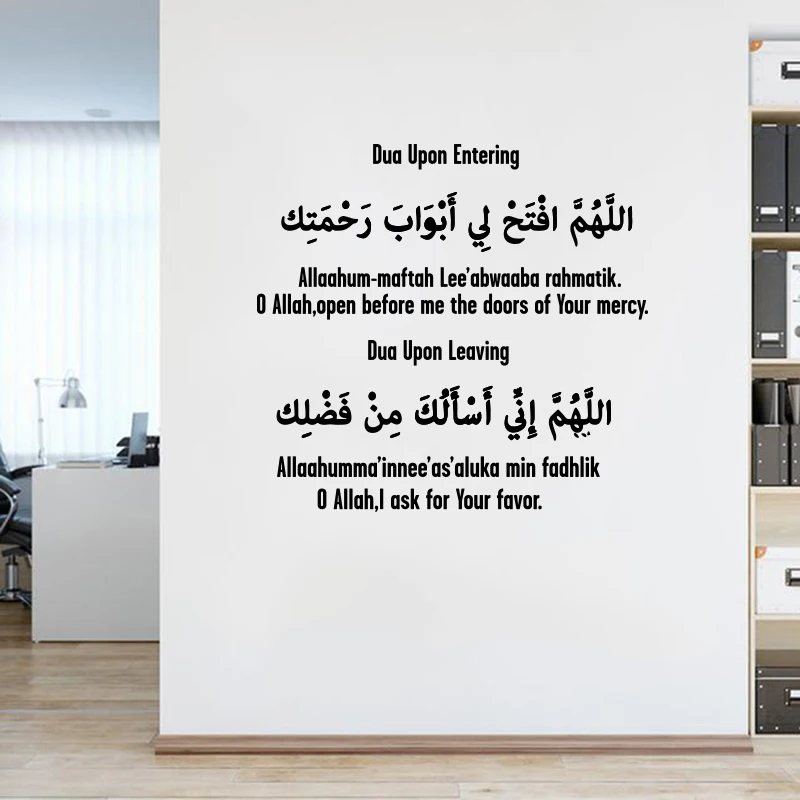 Dua Upon Entering
اللَّهُمَّ افْتَحْ لِي أَبْوَابَ رَحْمَتِك
Allaahum-maftah Lee'abwaaba rahmatik.
O Allah,open before me the doors of Your mercy.
Dua Upon Leaving
اللَّهُمَّ إِنِّي أَسْأَلُكَ مِنْ فَضْلِك
Allaahumma'innee'as'aluka min fadhlik
O Allah,I ask for Your favor.